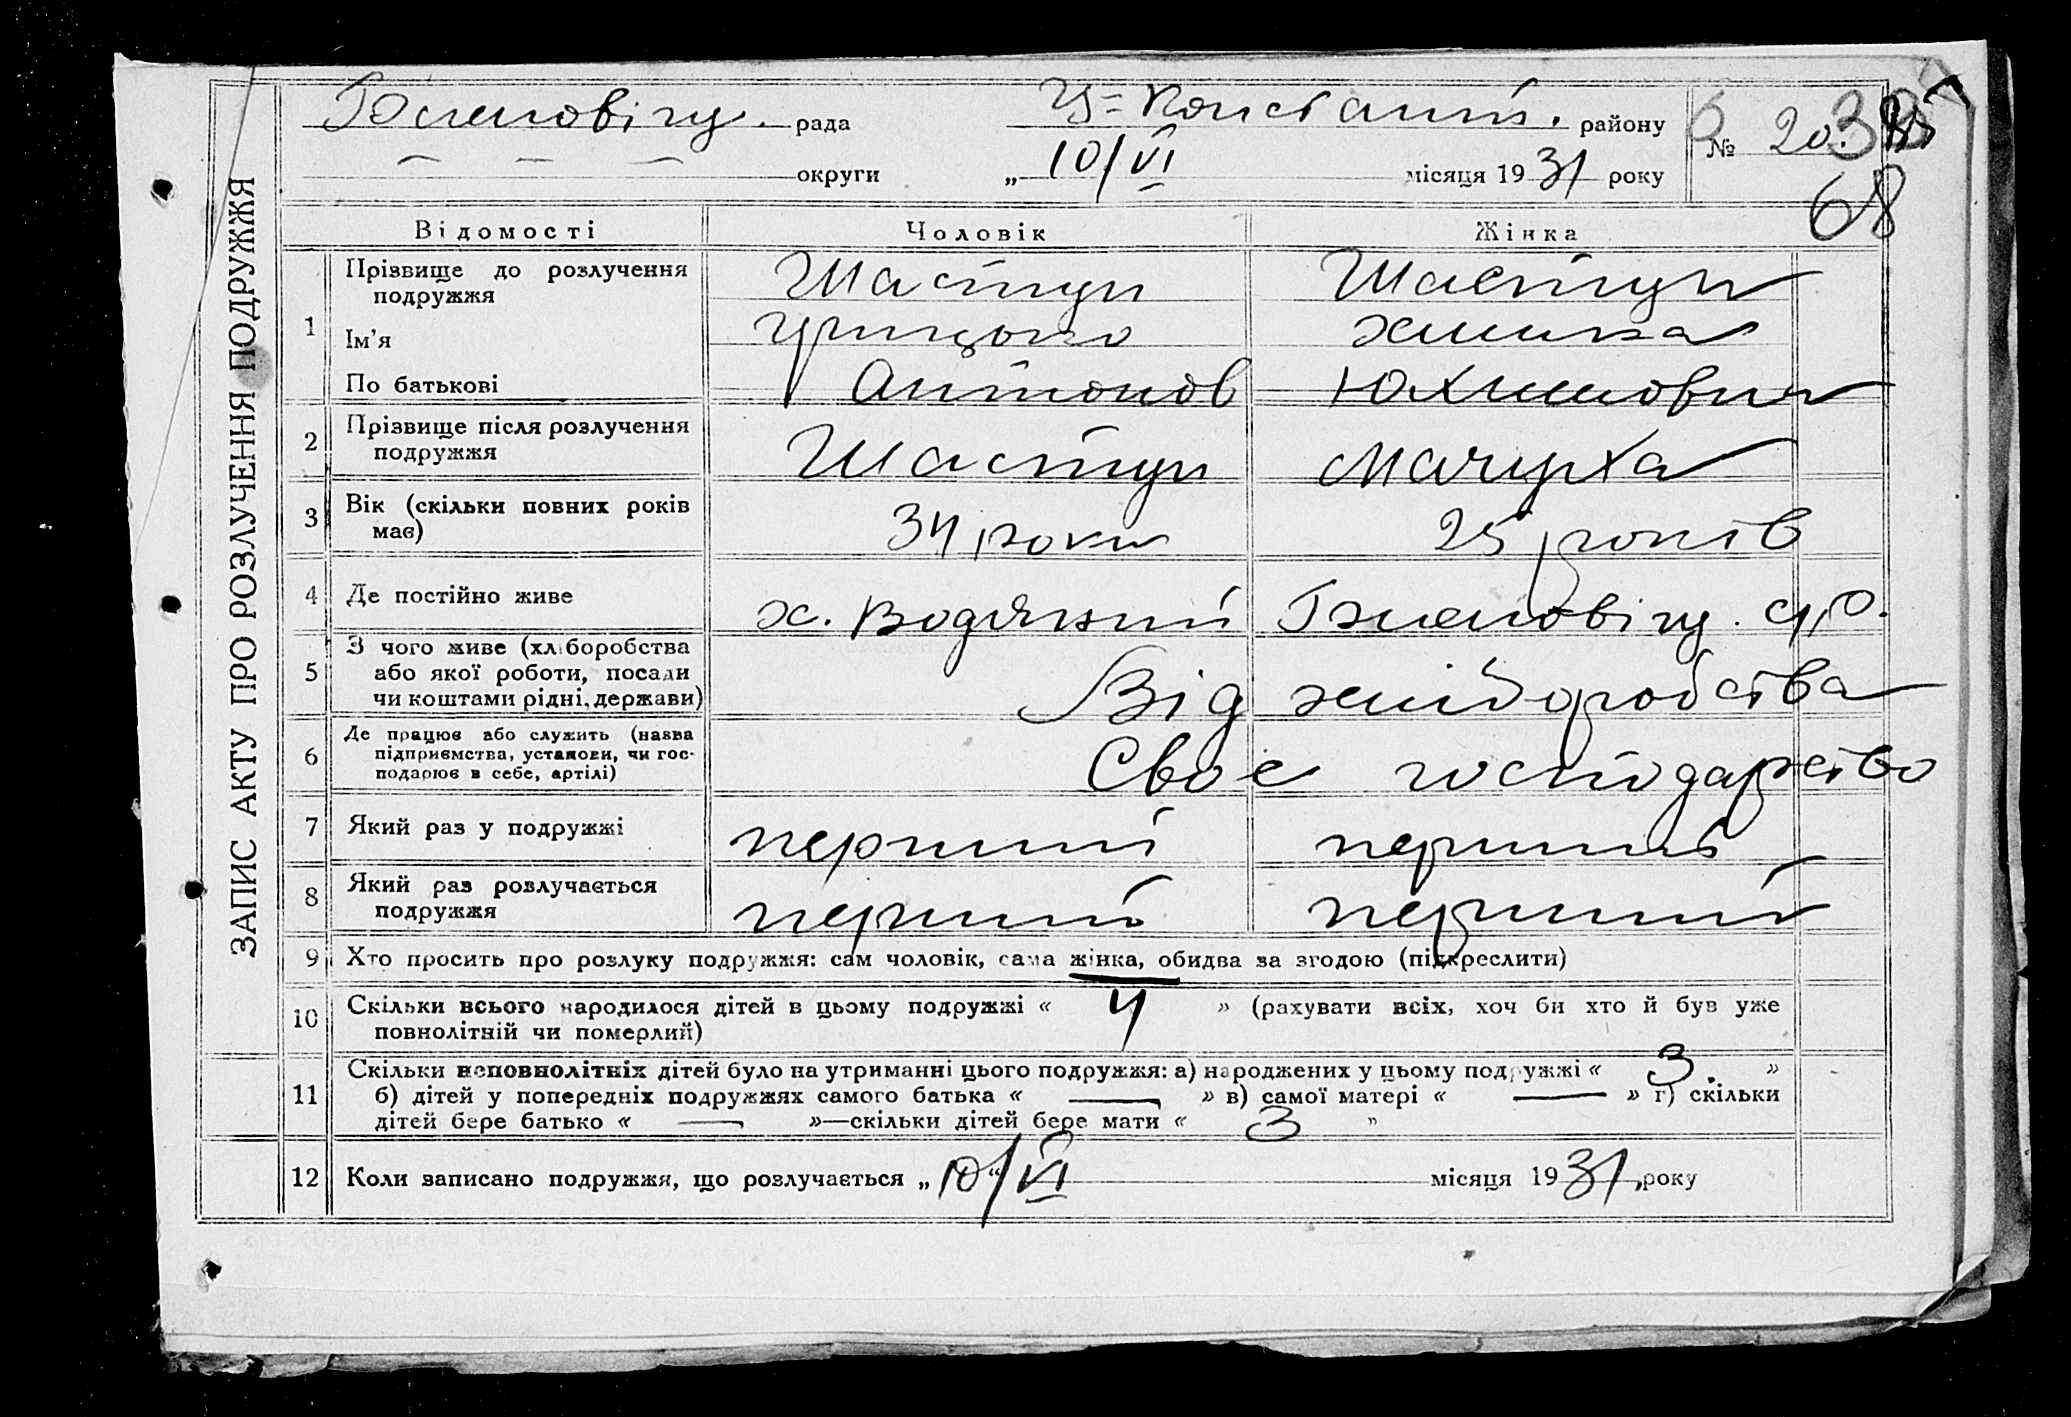 ЗАПИС АКТУ ПРО РОЗЛУЧЕННЯ ПОДРУЖЖЯ
рада
району
№ 20.
округи „ 10/VI місяця 1931 року
68
Відомості Чоловік Жінка
1 Прізвище до розлучення подружжя Шастун Шастун
Ім'я Грицько
По батькові Антонов Юхимовна
2 Прізвище після розлучення подружжя Шастун Мачурха
3 Вік (скільки повних років має) 34 роки 25 років
4 Де постійно живе х. Водяний
5 З чого живе (хліборобства або якої роботи, посади чи коштами рідні, держави) Від хліборобства
6 Де працює або служить (назва підприємства, установи, чи господарює в себе, артілі) Своє господарство
7 Який раз у подружжі перший перший
8 Який раз розлучається подружжя перший перший
9 Хто просить про розлуку подружжя: сам чоловік, сама жінка, обидва за згодою (підкреслити)
10 Скільки всього народилося дітей в цьому подружжі « 4 » (рахувати всіх, хоч би хто й був уже
повнолітній чи померлий)
11 Скільки неповнолітніх дітей було на утриманні цього подружжя: а) народжених у цьому подружжі « 3. »
б) дітей у попередніх подружжях самого батька « — » в) самої матері « — » г) скільки
дітей бере батько « — »—скільки дітей бере мати « 3 »
12 Коли записано подружжя, що розлучається „ 10“/VI місяця 1931 року